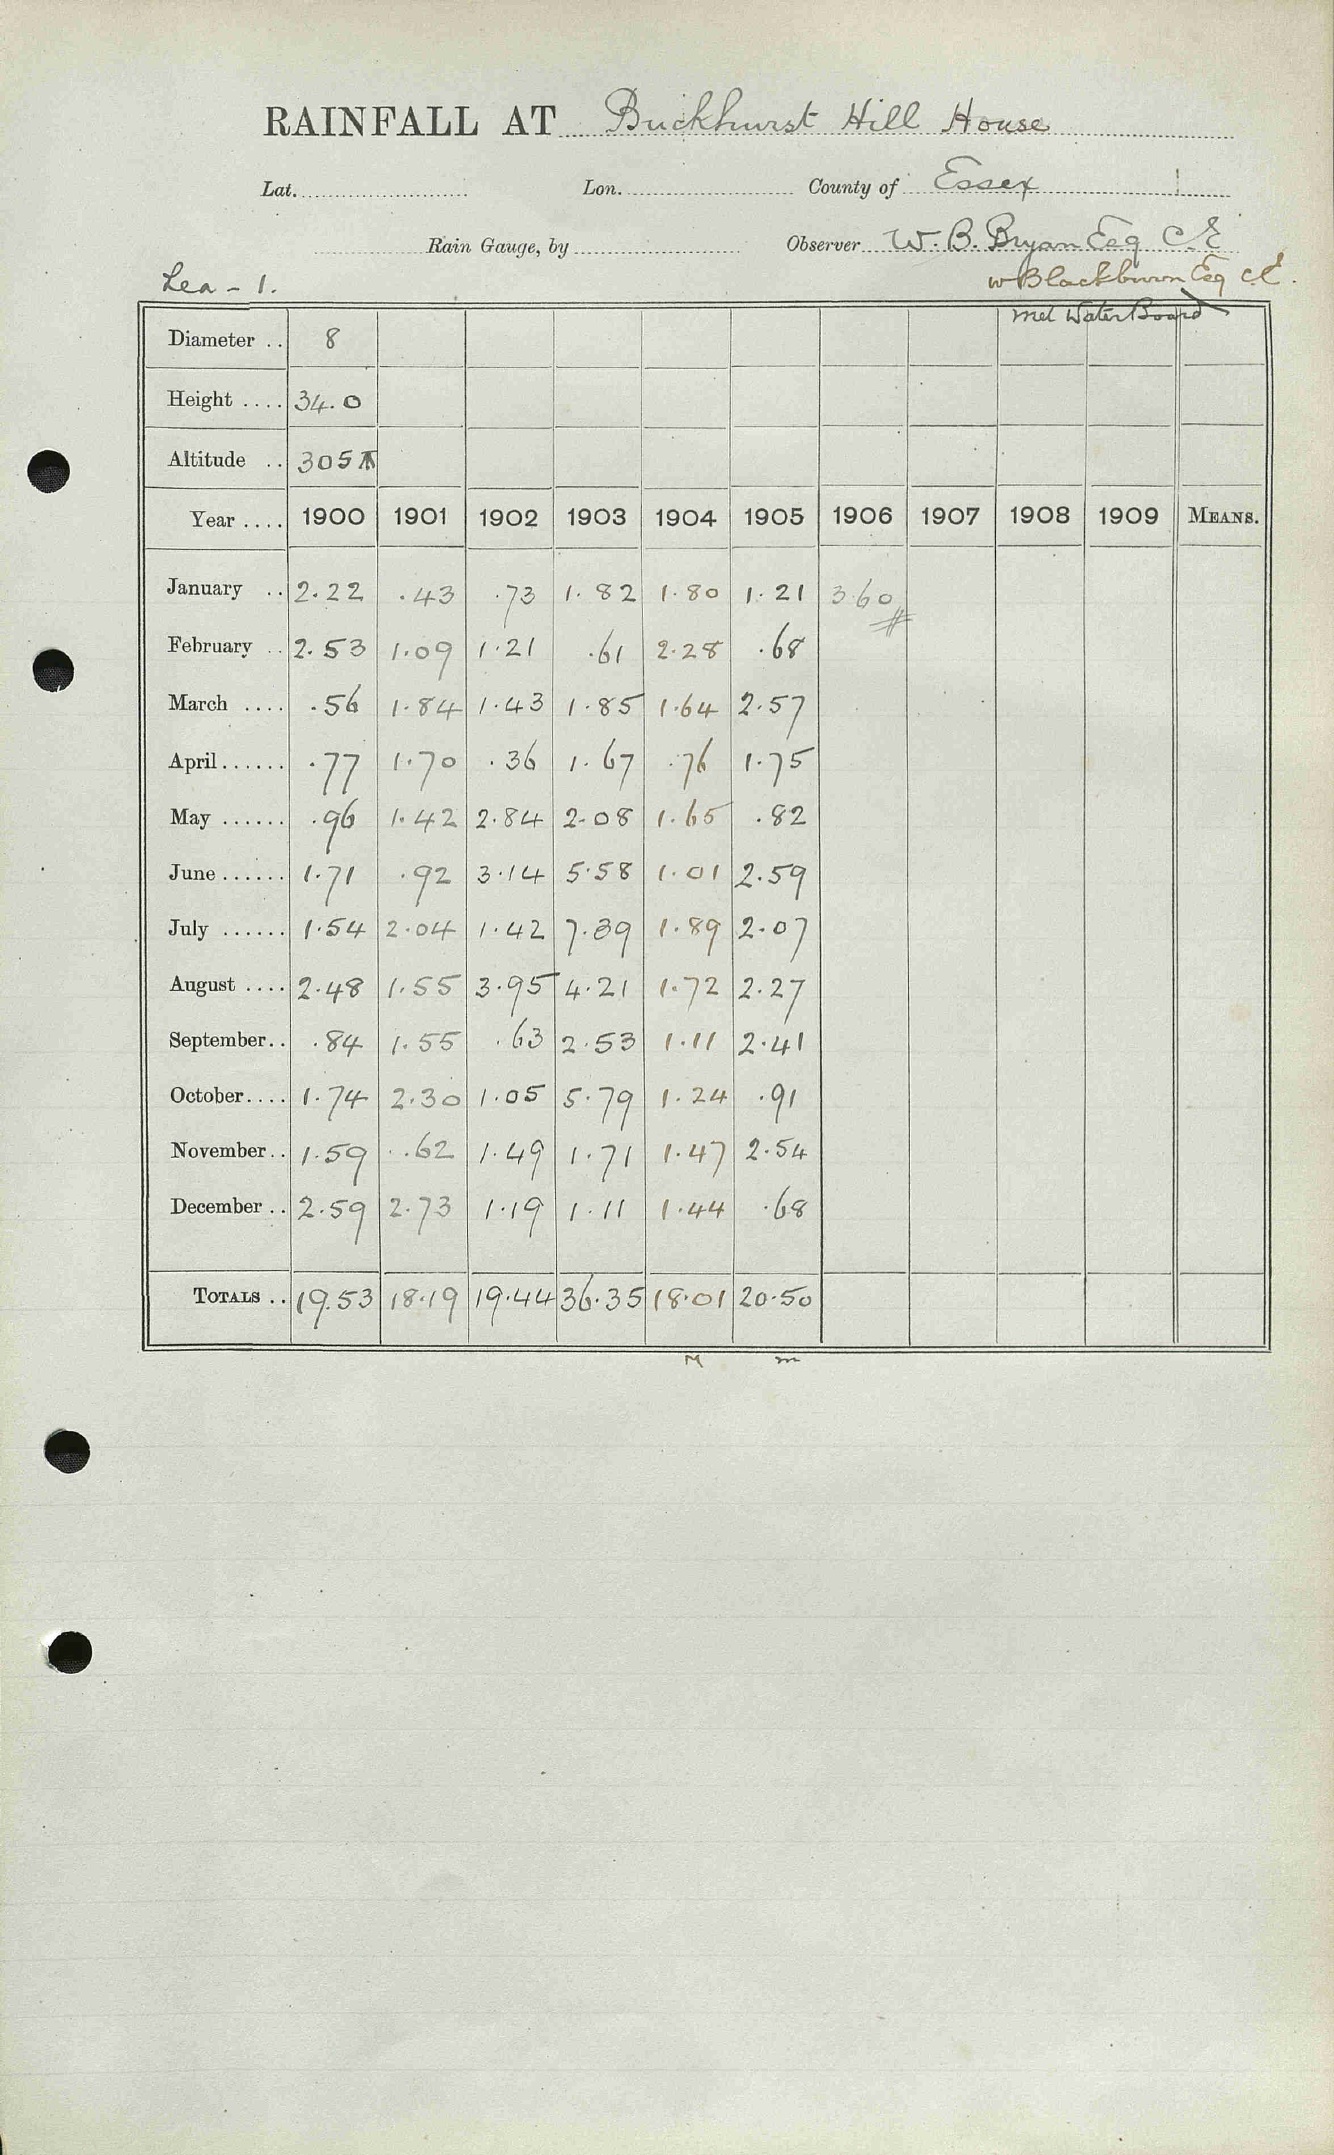 RAINFALL AT Buckhurst Hill House
Lat. Lon. County of Essex
Rain Gauge, by Observer W. B. Bryan Esq C.E
Lea - 1. W Blackburn Esq C.E.
Met Water Board
Diameter .. 8
Height .... 34.0
Altitude .. 305
Year .... 1900 1901 1902 1903 1904 1905 1906 1907 1908 1909 MEANS.
January .. 2.22 .43 .73 1.82 1.80 1.21 3.60
February .. 2.53 1.09 1.21 .61 2.28 .68
March .... .56 1.84 1.43 1.85 1.64 2.57
April ...... .77 1.70 .36 1.67 .76 1.75
May ...... .96 1.42 2.84 2.08 1.65 .82
June ...... 1.71 .92 3.14 5.58 1.01 2.59
July ...... 1.54 2.04 1.42 7.39 1.89 2.07
August .... 2.48 1.55 3.95 4.21 1.72 2.27
September .. .84 1.55 .63 2.53 1.11 2.41
October .... 1.74 2.30 1.05 5.79 1.24 .91
November .. 1.59 .62 1.49 1.71 1.47 2.54
December .. 2.59 2.73 1.19 1.11 1.44 .68
TOTALS .. 19.53 18.19 19.44 36.35 18.01 20.50
M m